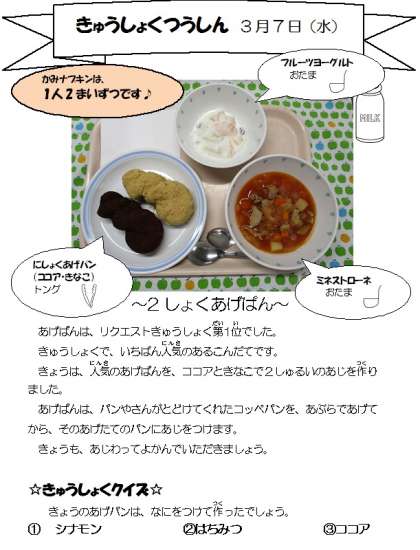 きゅうしょくつうしん ３月７日（水）
かみナフキンは、
１人２まいずつです♪
フルーツヨーグルト
おたま
MILK
にしょくあげパン
（ココア・きなこ）
トング
ミネストローネ
おたま
～２しょくあげぱん～
あげぱんは、リクエストきゅうしょく第１位でした。
きゅうしょくで、いちばん人気のあるこんだてです。
きょうは、人気のあげぱんを、ココアときなこで２しゅるいのあじを作り
ました。
あげぱんは、パンやさんがとどけてくれたコッペパンを、あぶらであげて
から、そのあげたてのパンにあじをつけます。
きょうも、あじわってよかんでいただきましょう。
☆きゅうしょくクイズ☆
きょうのあげパンは、なにをつけて作ったでしょう。
① シナモン ②はちみつ ③ココア